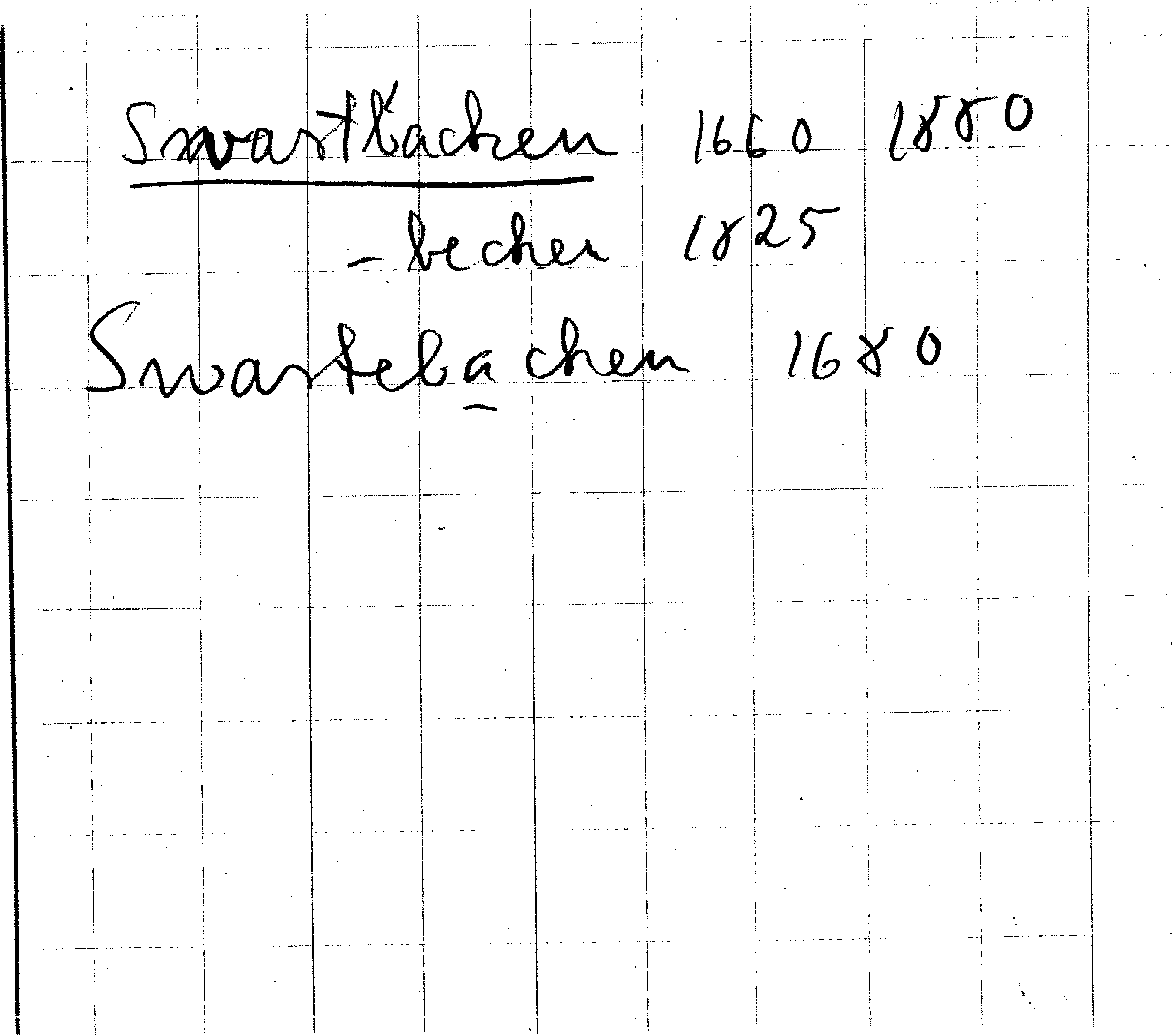 Swartbacken 1660 1880
- becken 1825
Swartebacken 1680